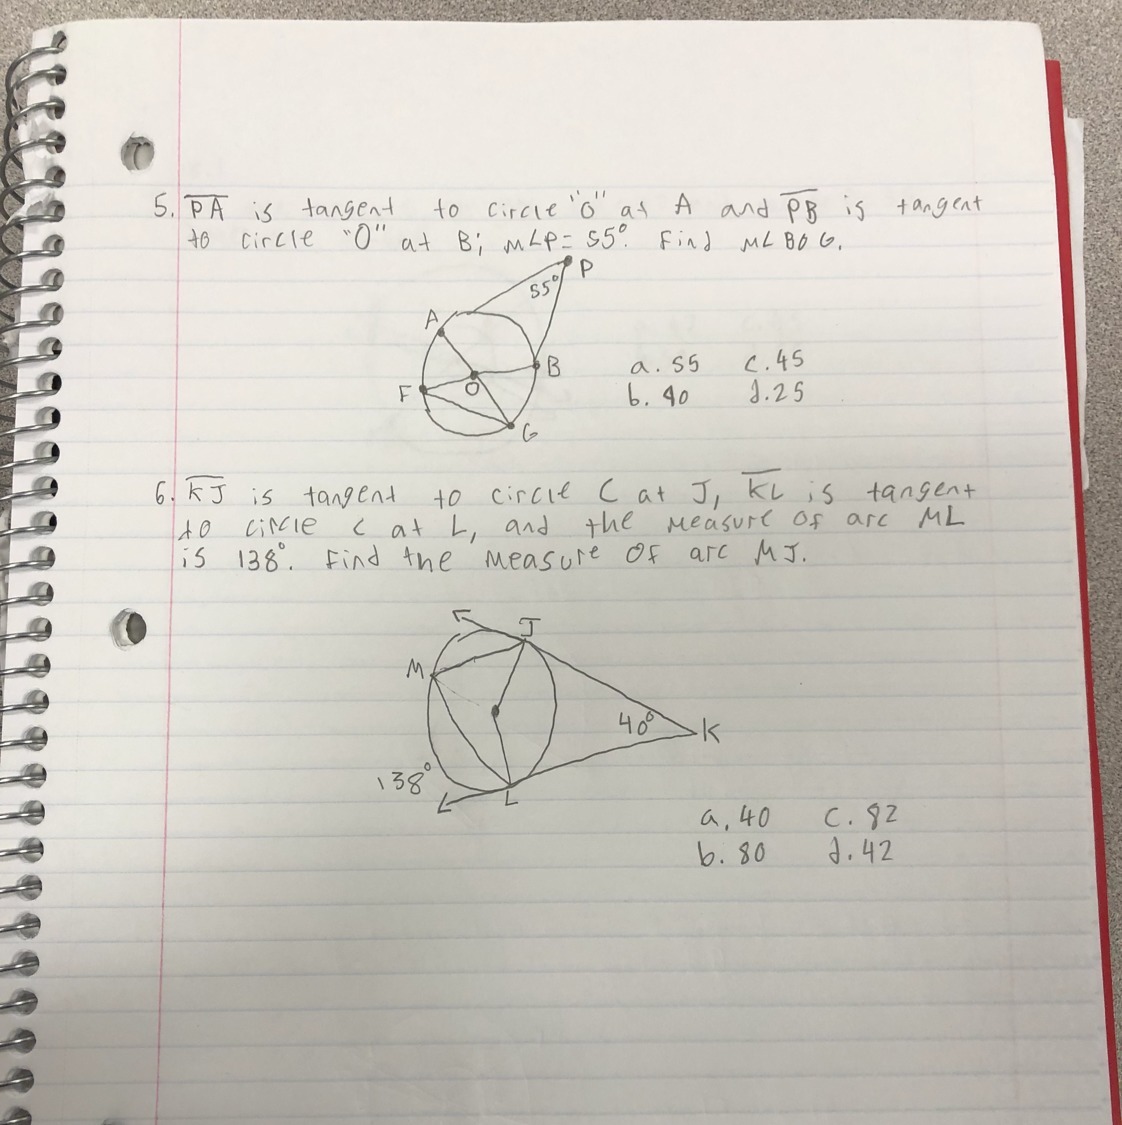 5. PA is tangent to circle "O" at A and PB is tangent
to circle "O" at B; m∠P= 55°. Find m∠BOG.
P
55°
A
B
F
O
G
a. 55 c. 45
b. 90 d. 25
6. KJ is tangent to circle C at J, KL is tangent
to circle C at L, and the measure of arc ML
is 138°. Find the measure of arc MJ.
J
M
40°
K
138°
L
a. 40 c. 82
b. 80 d. 42